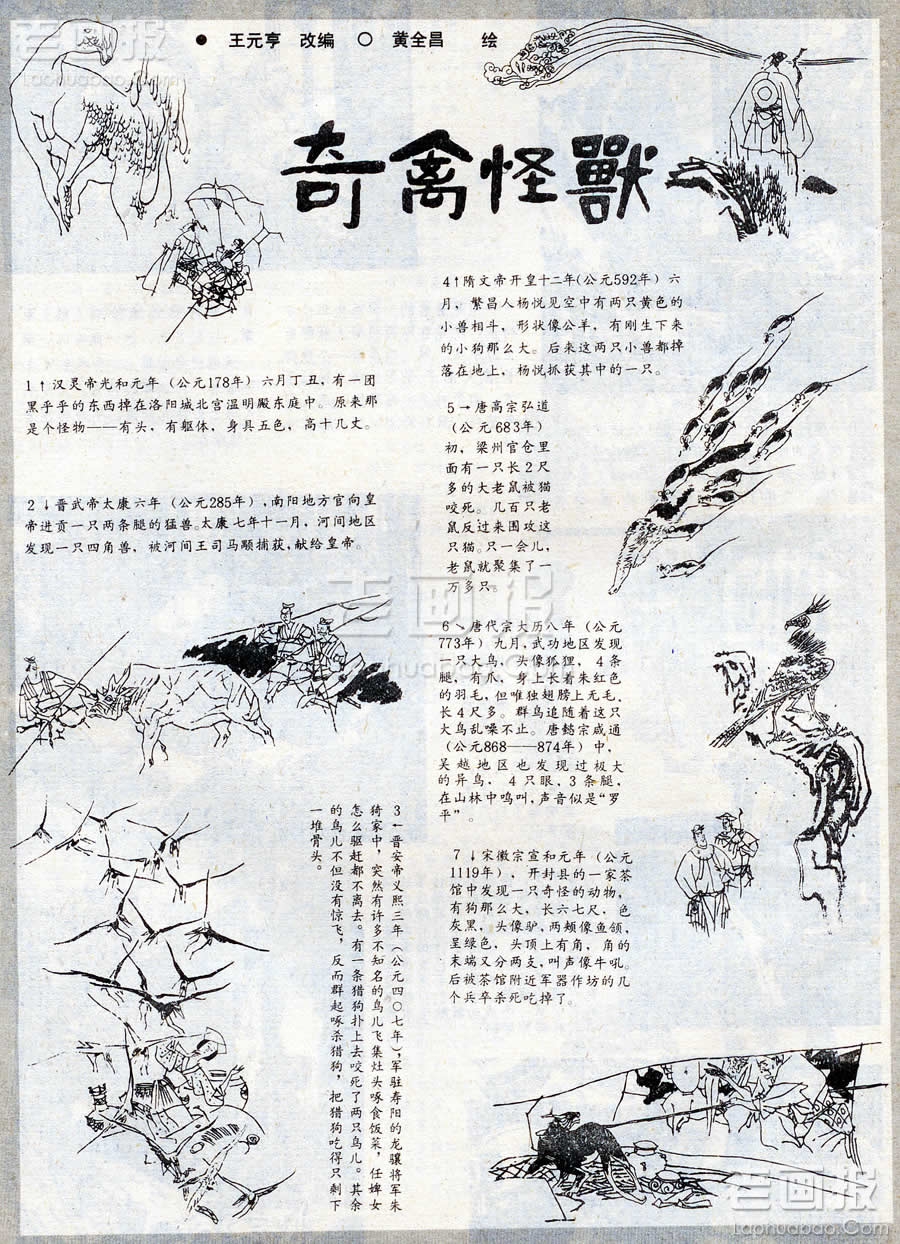 老画报
laohuabao.com
● 王元亨 改编 ○ 黄全昌 绘
奇禽怪獸
1↑汉灵帝光和元年（公元178年）六月丁丑，有一团
黑乎乎的东西掉在洛阳城北宫温明殿东庭中。原来那
是个怪物——有头，有躯体，身具五色，高十几丈。
2↓晋武帝太康六年（公元285年），南阳地方官向皇
帝进贡一只两条腿的猛兽。太康七年十一月，河间地区
发现一只四角兽，被河间王司马颙捕获，献给皇帝。
3←晋安帝义熙三年（公元四〇七年），军驻寿阳的龙骧将军朱
猗家中，突然有许多不知名的鸟儿飞集灶头啄食饭菜，任婢女
怎么驱赶都不离去。有一条猎狗扑上去咬死了两只鸟儿。其余
的鸟儿不但没有惊飞，反而群起啄杀猎狗，把猎狗吃得只剩下
一堆骨头。
4↑隋文帝开皇十二年(公元592年）六
月，繁昌人杨悦见空中有两只黄色的
小兽相斗，形状像公羊，有刚生下来
的小狗那么大。后来这两只小兽都掉
落在地上，杨悦抓获其中的一只。
5→唐高宗弘道
（公元683年）
初，梁州官仓里
面有一只长2尺
多的大老鼠被猫
咬死。几百只老
鼠反过来围攻这
只猫。只一会儿，
老鼠就聚集了一
万多只。
6↘唐代宗大历八年（公元
773年）九月，武功地区发现
一只大鸟，头像狐狸，4条
腿，有爪，身上长着朱红色
的羽毛，但唯独翅膀上无毛，
长4尺多。群鸟追随着这只
大鸟乱噪不止。唐懿宗咸通
（公元868——874年）中，
吴越地区也发现过极大
的异鸟，4只眼、3条腿，
在山林中鸣叫，声音似是“罗
平”。
7↓宋徽宗宣和元年（公元
1119年），开封县的一家茶
馆中发现一只奇怪的动物，
有狗那么大，长六七尺，色
灰黑，头像驴，两颊像鱼颔，
呈绿色，头顶上有角，角的
末端又分两支，叫声像牛吼。
后被茶馆附近军器作坊的几
个兵卒杀死吃掉了。
老画报
laohuabao.com
老画报
laohuabao.Com